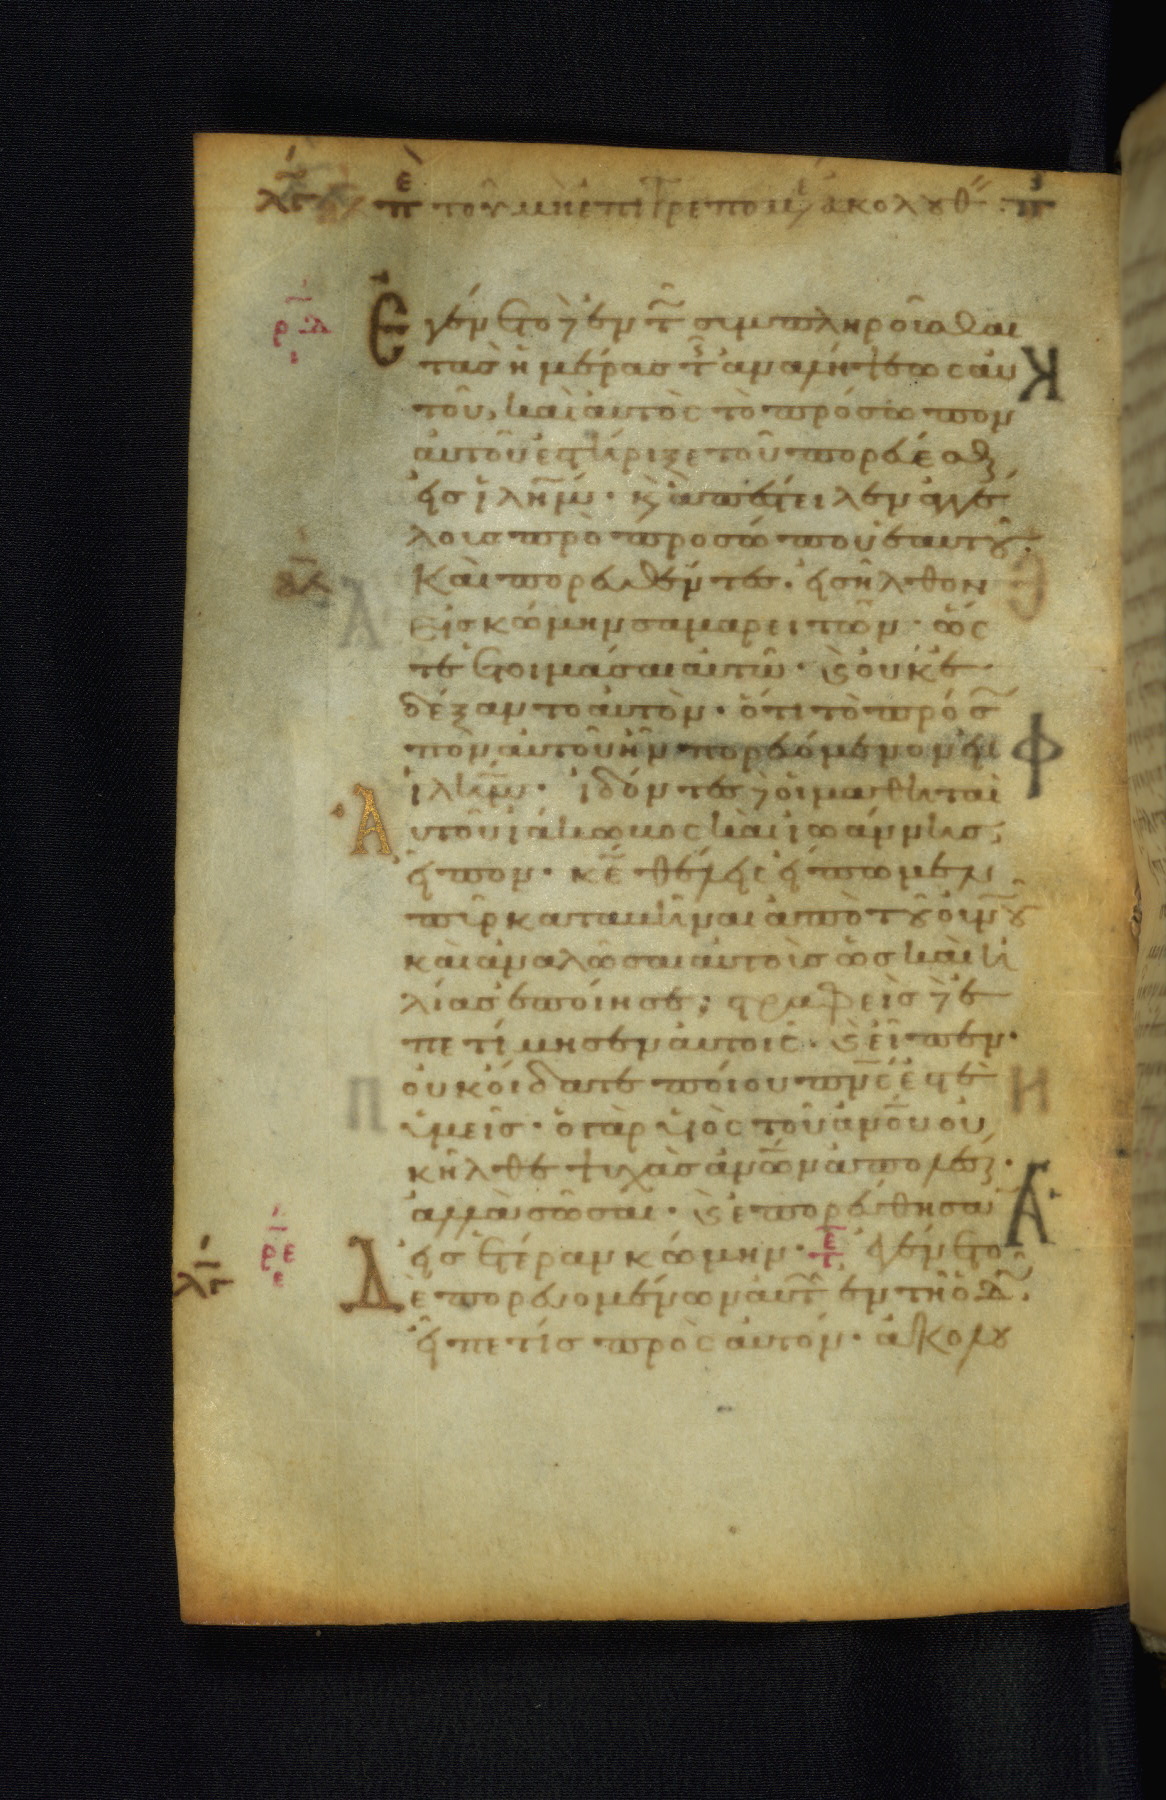 λζ πε τοῦ μὴ ἐπιτρεπομ ἀκολουθ
Ἐγένετο δὲ ἐν τ συμπληροῦσθαι
τὰς ἡμέρας τ ἀναλήψεως αὐ
τοῦ, καὶ αὐτὸς τὸ πρόσωπον
αὐτοῦ ἐστήριξε τοῦ πορεύεσθ
εἰς ἰλημ · κ ἀπέστειλεν ἀγγέ
λους πρὸ προσώπου ἑαυτοῦ ·
Καὶ πορευθέντες · εἰσῆλθον
εἰς κώμην σαμαρειτῶν · ὥς
τε ἑτοιμάσαι αὐτῶ · κ οὐκ ἐ
δέξαντο αὐτὸν · ὅτι τὸ πρόσ
πον αὐτοῦ ἦν πορευόμενον εἰς
ἰλημ · ἰδόντες δὲ οἱ μαθηταὶ
Α ὐτοῦ ἰάκωβος καὶ ἰωάννης,
εἶπον · κε θέλεις εἴπωμεν
πῦρ καταβῆναι ἀπὸ τοῦ οὐνου
καὶ ἀναλῶσαι αὐτοὺς ὡς καὶ ἠ
λίας ἐποίησε; στραφεὶς δὲ ἐ
πετίμησεν αὐτοῖς · κ εἶπεν ·
οὐκ οἴδατε ποίου πνς ἐστὲ
ὑμεῖς · ὁ γὰρ υἱὸς τοῦ ἀνου οὐ
κ ἦλθε ψυχὰς ἀνων ἀπολέσ ·
ἀλλὰ σῶσαι · κ ἐπορεύθησαν
εἰς ἑτέραν κώμην · ἐγένετο
Δ ὲ πορευομένων αὐτ ἐν τῆ ὁδ ·
εἶπέ τις πρὸς αὐτόν · ἀκολου